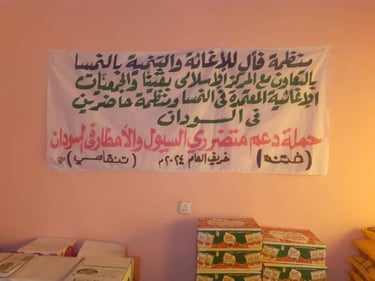 منظمة فأل للإغاثة والتنمية بالنمسا
بالتعاون مع المركز الإسلامي بفيينا والجمعيات
الإغاثية المعتمدة في النمسا ومنظمة حاضرين
في السودان
حملة دعم متضرري السيول والأمطار في السودان
(فتنة) خريف العام ٢٠٢٤م (تنقاسي)